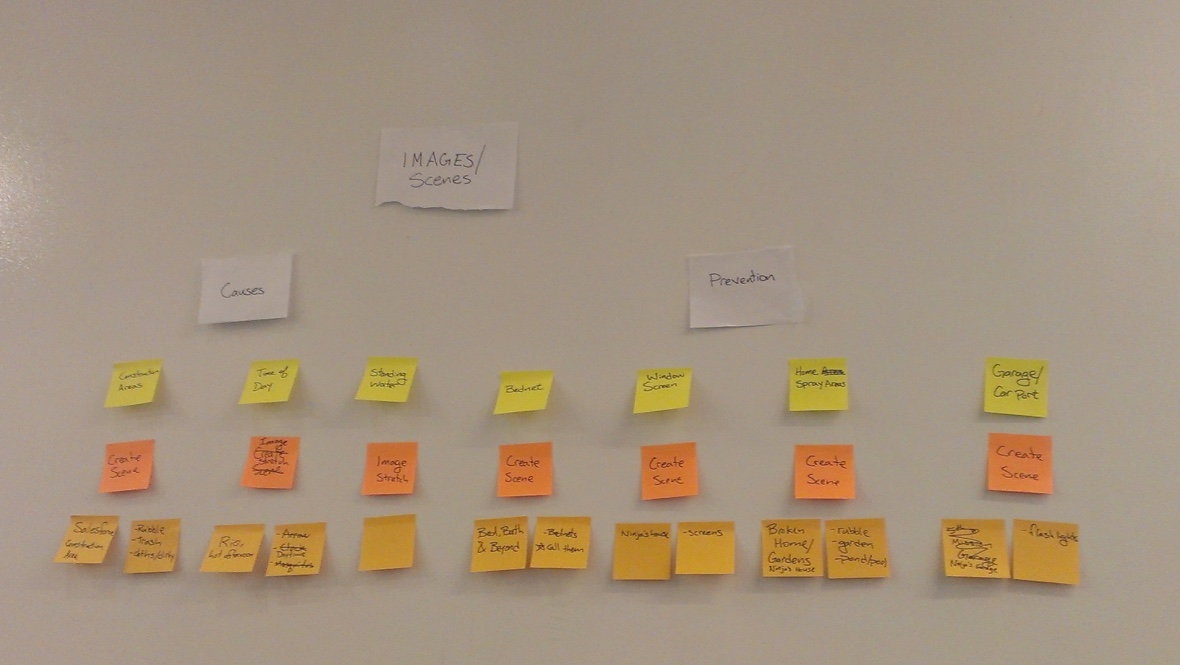 IMAGES/
Scenes
Causes
Prevention
Construction
Areas
Time of
Day
Standing
Water
Bednet
Window
Screen
Home
Spray Areas
Garage/
Car Port
Create
Scene
Image
Stretch
Image
Stretch
Create
Scene
Create
Scene
Create
Scene
Create
Scene
Construction
Area
-Rubble
-trash
Rio,
hot afternoon
Bed, Bath
& Beyond
-Bednets
Call them
Ninja's house
-screens
Home/
Gardens
Ninja's House
-rubble
-garden
-pond/pool
Garage
-flash lights